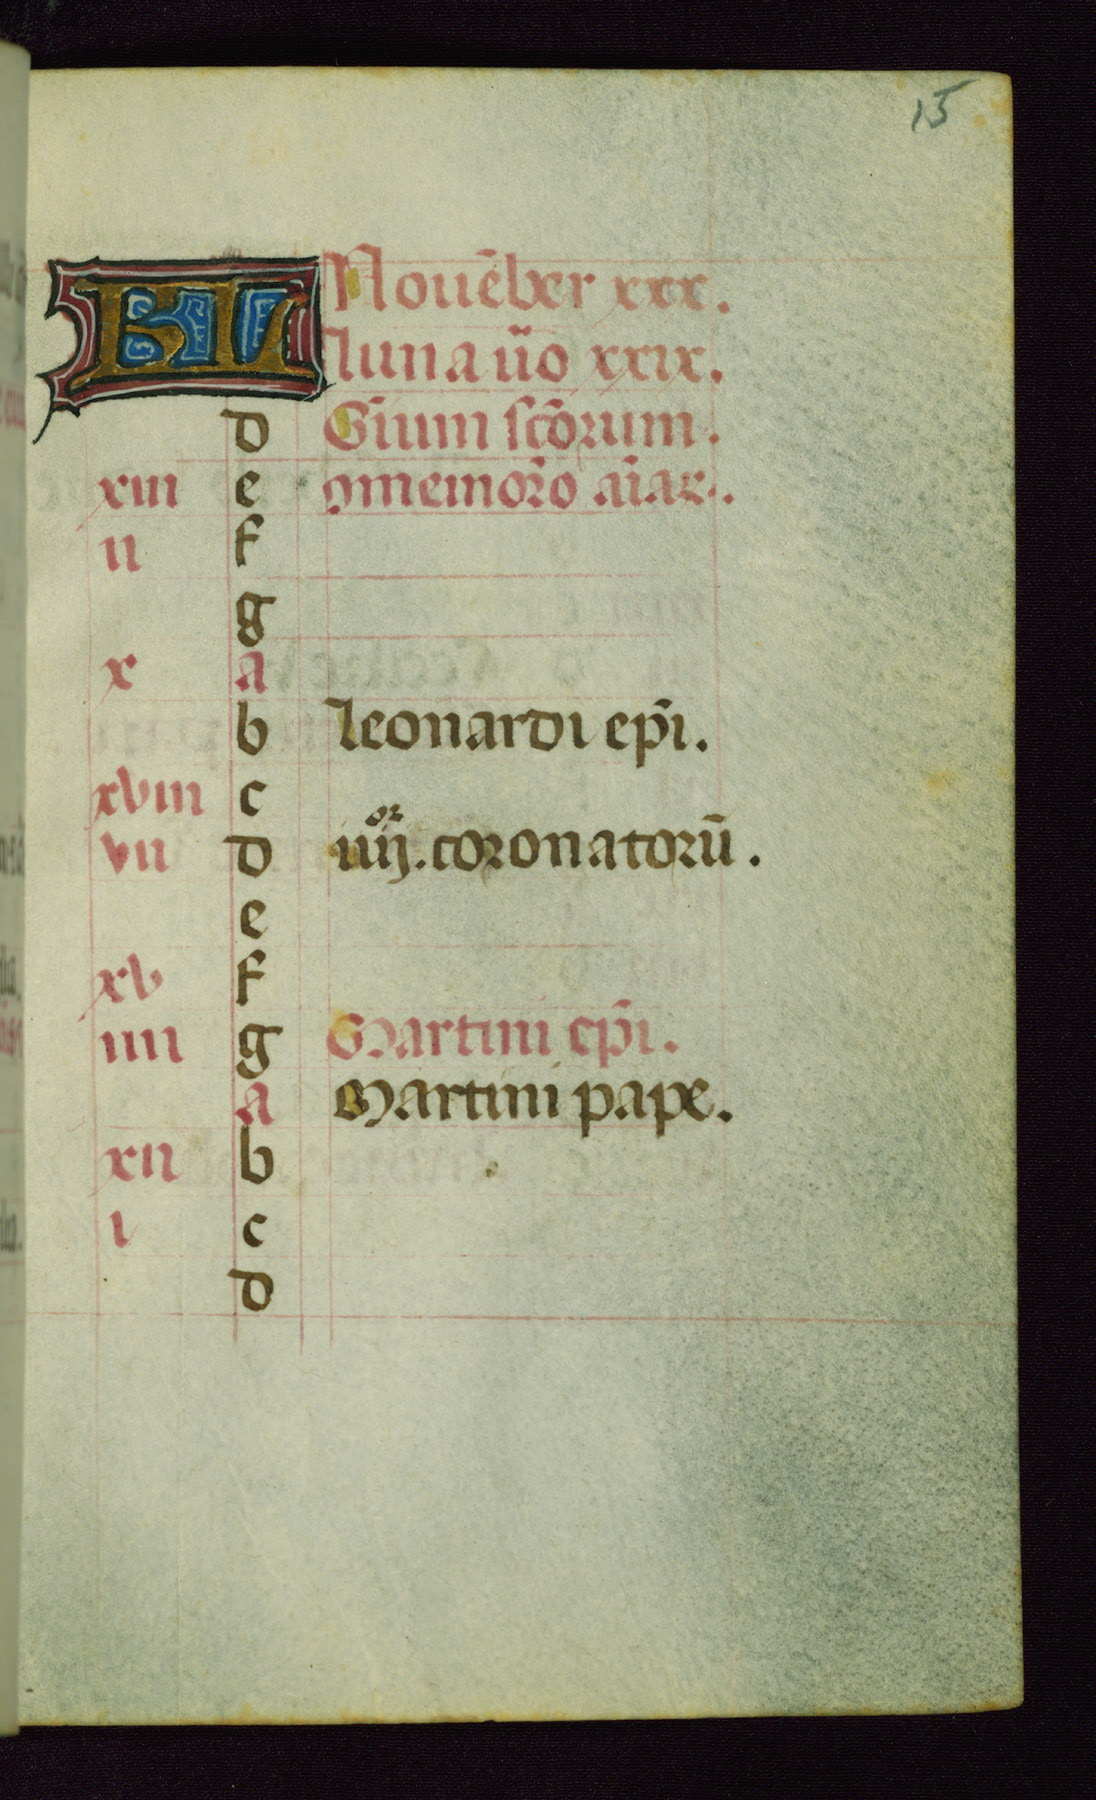 15
KL Nouēber xxx.
luna ūo xxıx.
d Oīum scōrum.
xiii e ꝯmemoro aīaꝝ.
ii f
g
x a
b leonardi epi.
xviii c
vii d iiij.or coronatorū.
e
xv f
iiii g Martini epi.
a Martini pape.
xii b
i c
d